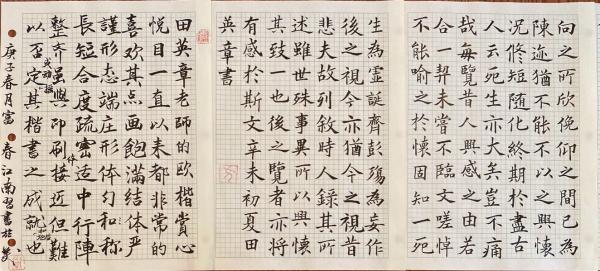 向之所欣俛仰之間已為
陳迹猶不能不以之興懷
况修短随化終期於盡古
人云死生亦大矣豈不痛
哉每覽昔人興感之由若
合一契未嘗不臨文嗟悼
不能喻之於懷固知一死
生為虛誕齊彭殤為妄作
後之視今亦猶今之視昔
悲夫故列敘時人録其所
述雖世殊事異所以興懷
其致一也後之覽者亦将
有感於斯文辛未初夏田
英章書
田英章老師的欧楷賞心
悦目一直以来都非常的
喜欢其点画飽滿結体严
謹形态端庄形体匀和称
長短合度疏密適中行陣
整齐虽與印刷体接近但難
以否定其楷書之成就也
庚子春月富春江南習書於